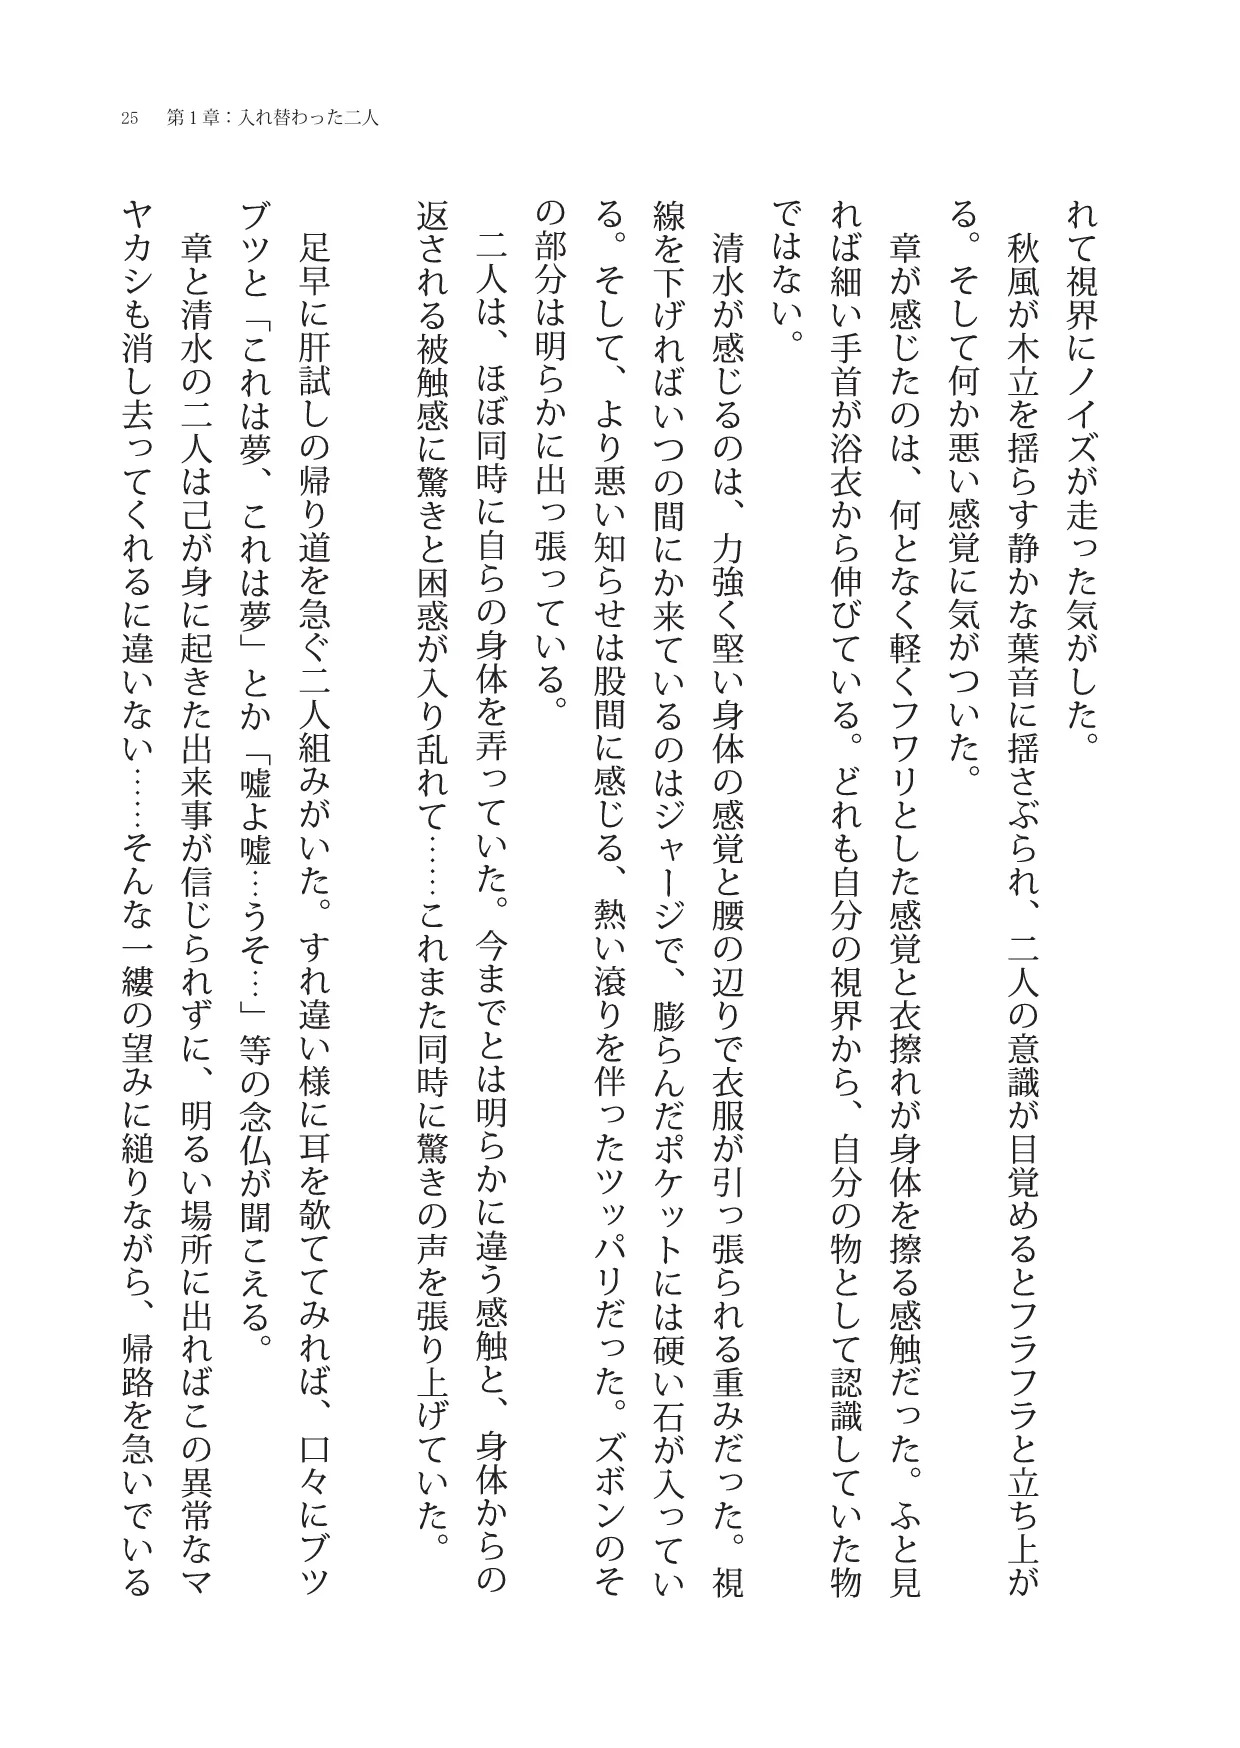 25 第1章：入れ替わった二人
れて視界にノイズが走った気がした。
秋風が木立を揺らす静かな葉音に揺さぶられ、二人の意識が目覚めるとフラフラと立ち上が
る。そして何か悪い感覚に気がついた。
章が感じたのは、何となく軽くフワリとした感覚と衣擦れが身体を擦る感触だった。ふと見
れば細い手首が浴衣から伸びている。どれも自分の視界から、自分の物として認識していた物
ではない。
清水が感じるのは、力強く堅い身体の感覚と腰の辺りで衣服が引っ張られる重みだった。視
線を下げればいつの間にか来ているのはジャージで、膨らんだポケットには硬い石が入ってい
る。そして、より悪い知らせは股間に感じる、熱い滾りを伴ったツッパリだった。ズボンのそ
の部分は明らかに出っ張っている。
二人は、ほぼ同時に自らの身体を弄っていた。今までとは明らかに違う感触と、身体からの
返される被触感に驚きと困惑が入り乱れて……これまた同時に驚きの声を張り上げていた。
足早に肝試しの帰り道を急ぐ二人組みがいた。すれ違い様に耳を欹ててみれば、口々にブツ
ブツと「これは夢、これは夢」とか「嘘よ嘘…うそ…」等の念仏が聞こえる。
章と清水の二人は己が身に起きた出来事が信じられずに、明るい場所に出ればこの異常なマ
ヤカシも消し去ってくれるに違いない……そんな一縷の望みに縋りながら、帰路を急いでいる